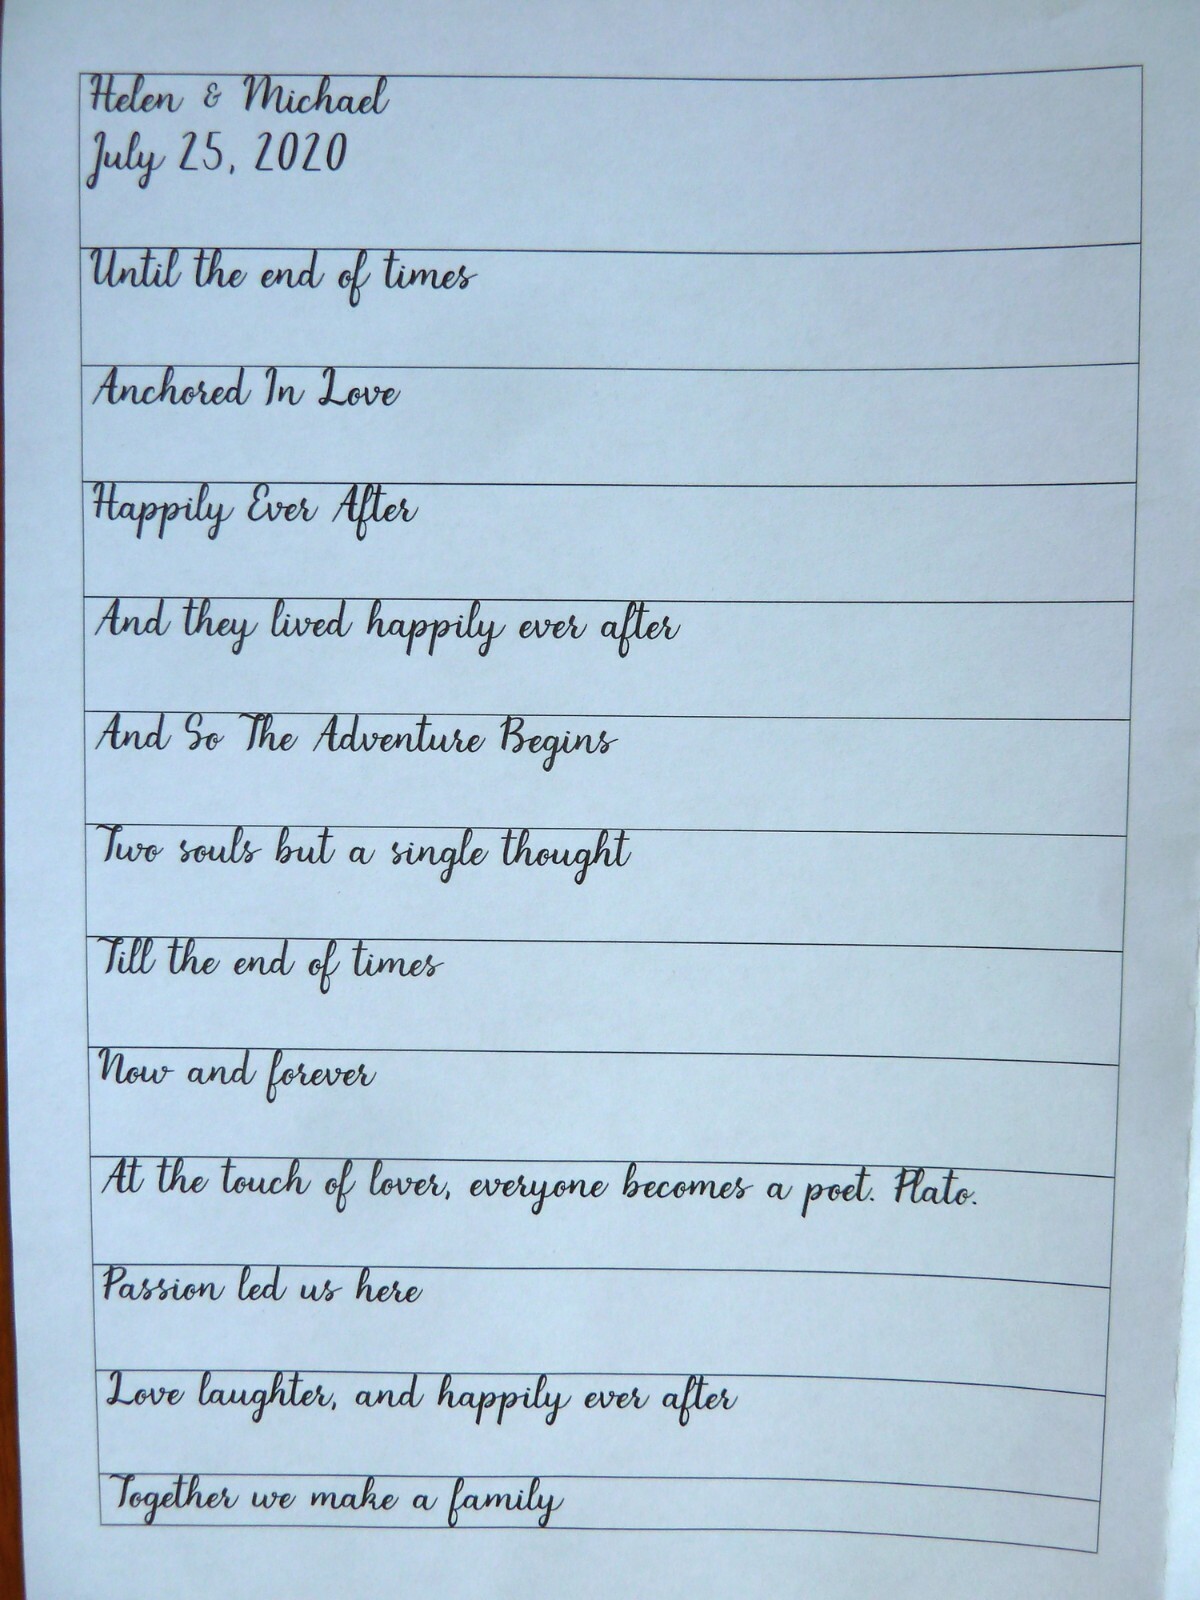 Helen & Michael
July 25, 2020
Until the end of times
Anchored In Love
Happily Ever After
And they lived happily ever after
And So The Adventure Begins
Two souls but a single thought
Till the end of times
Now and forever
At the touch of lover, everyone becomes a poet. Plato.
Passion led us here
Love laughter, and happily ever after
Together we make a family